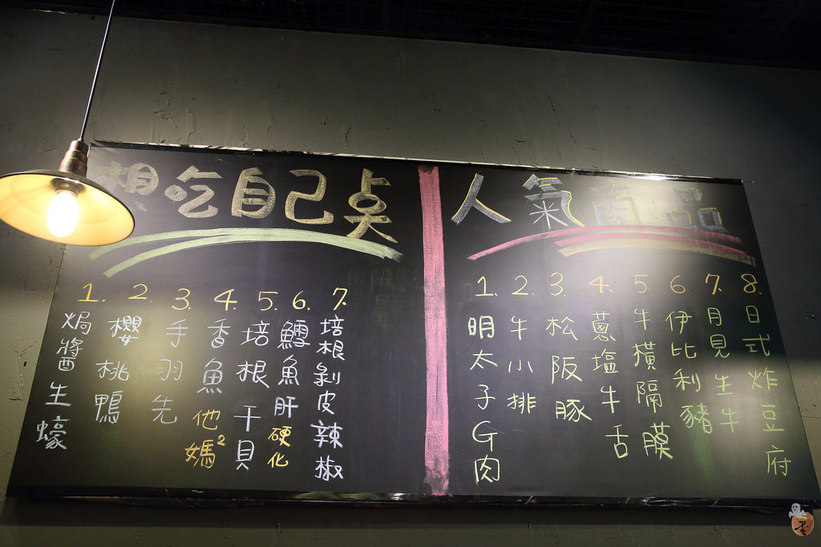 想吃自己点
1. 焗醬生蠔
2. 櫻桃鴨
3. 手羽先
4. 香魚他媽²
5. 培根干貝
6. 鱈魚肝硬化
7. 培根剝皮辣椒
人氣商品
1. 明太子G肉
2. 牛小排
3. 松阪豚
4. 蔥塩牛舌
5. 牛橫隔膜
6. 伊比利豬
7. 月見生牛
8. 日式炸豆府